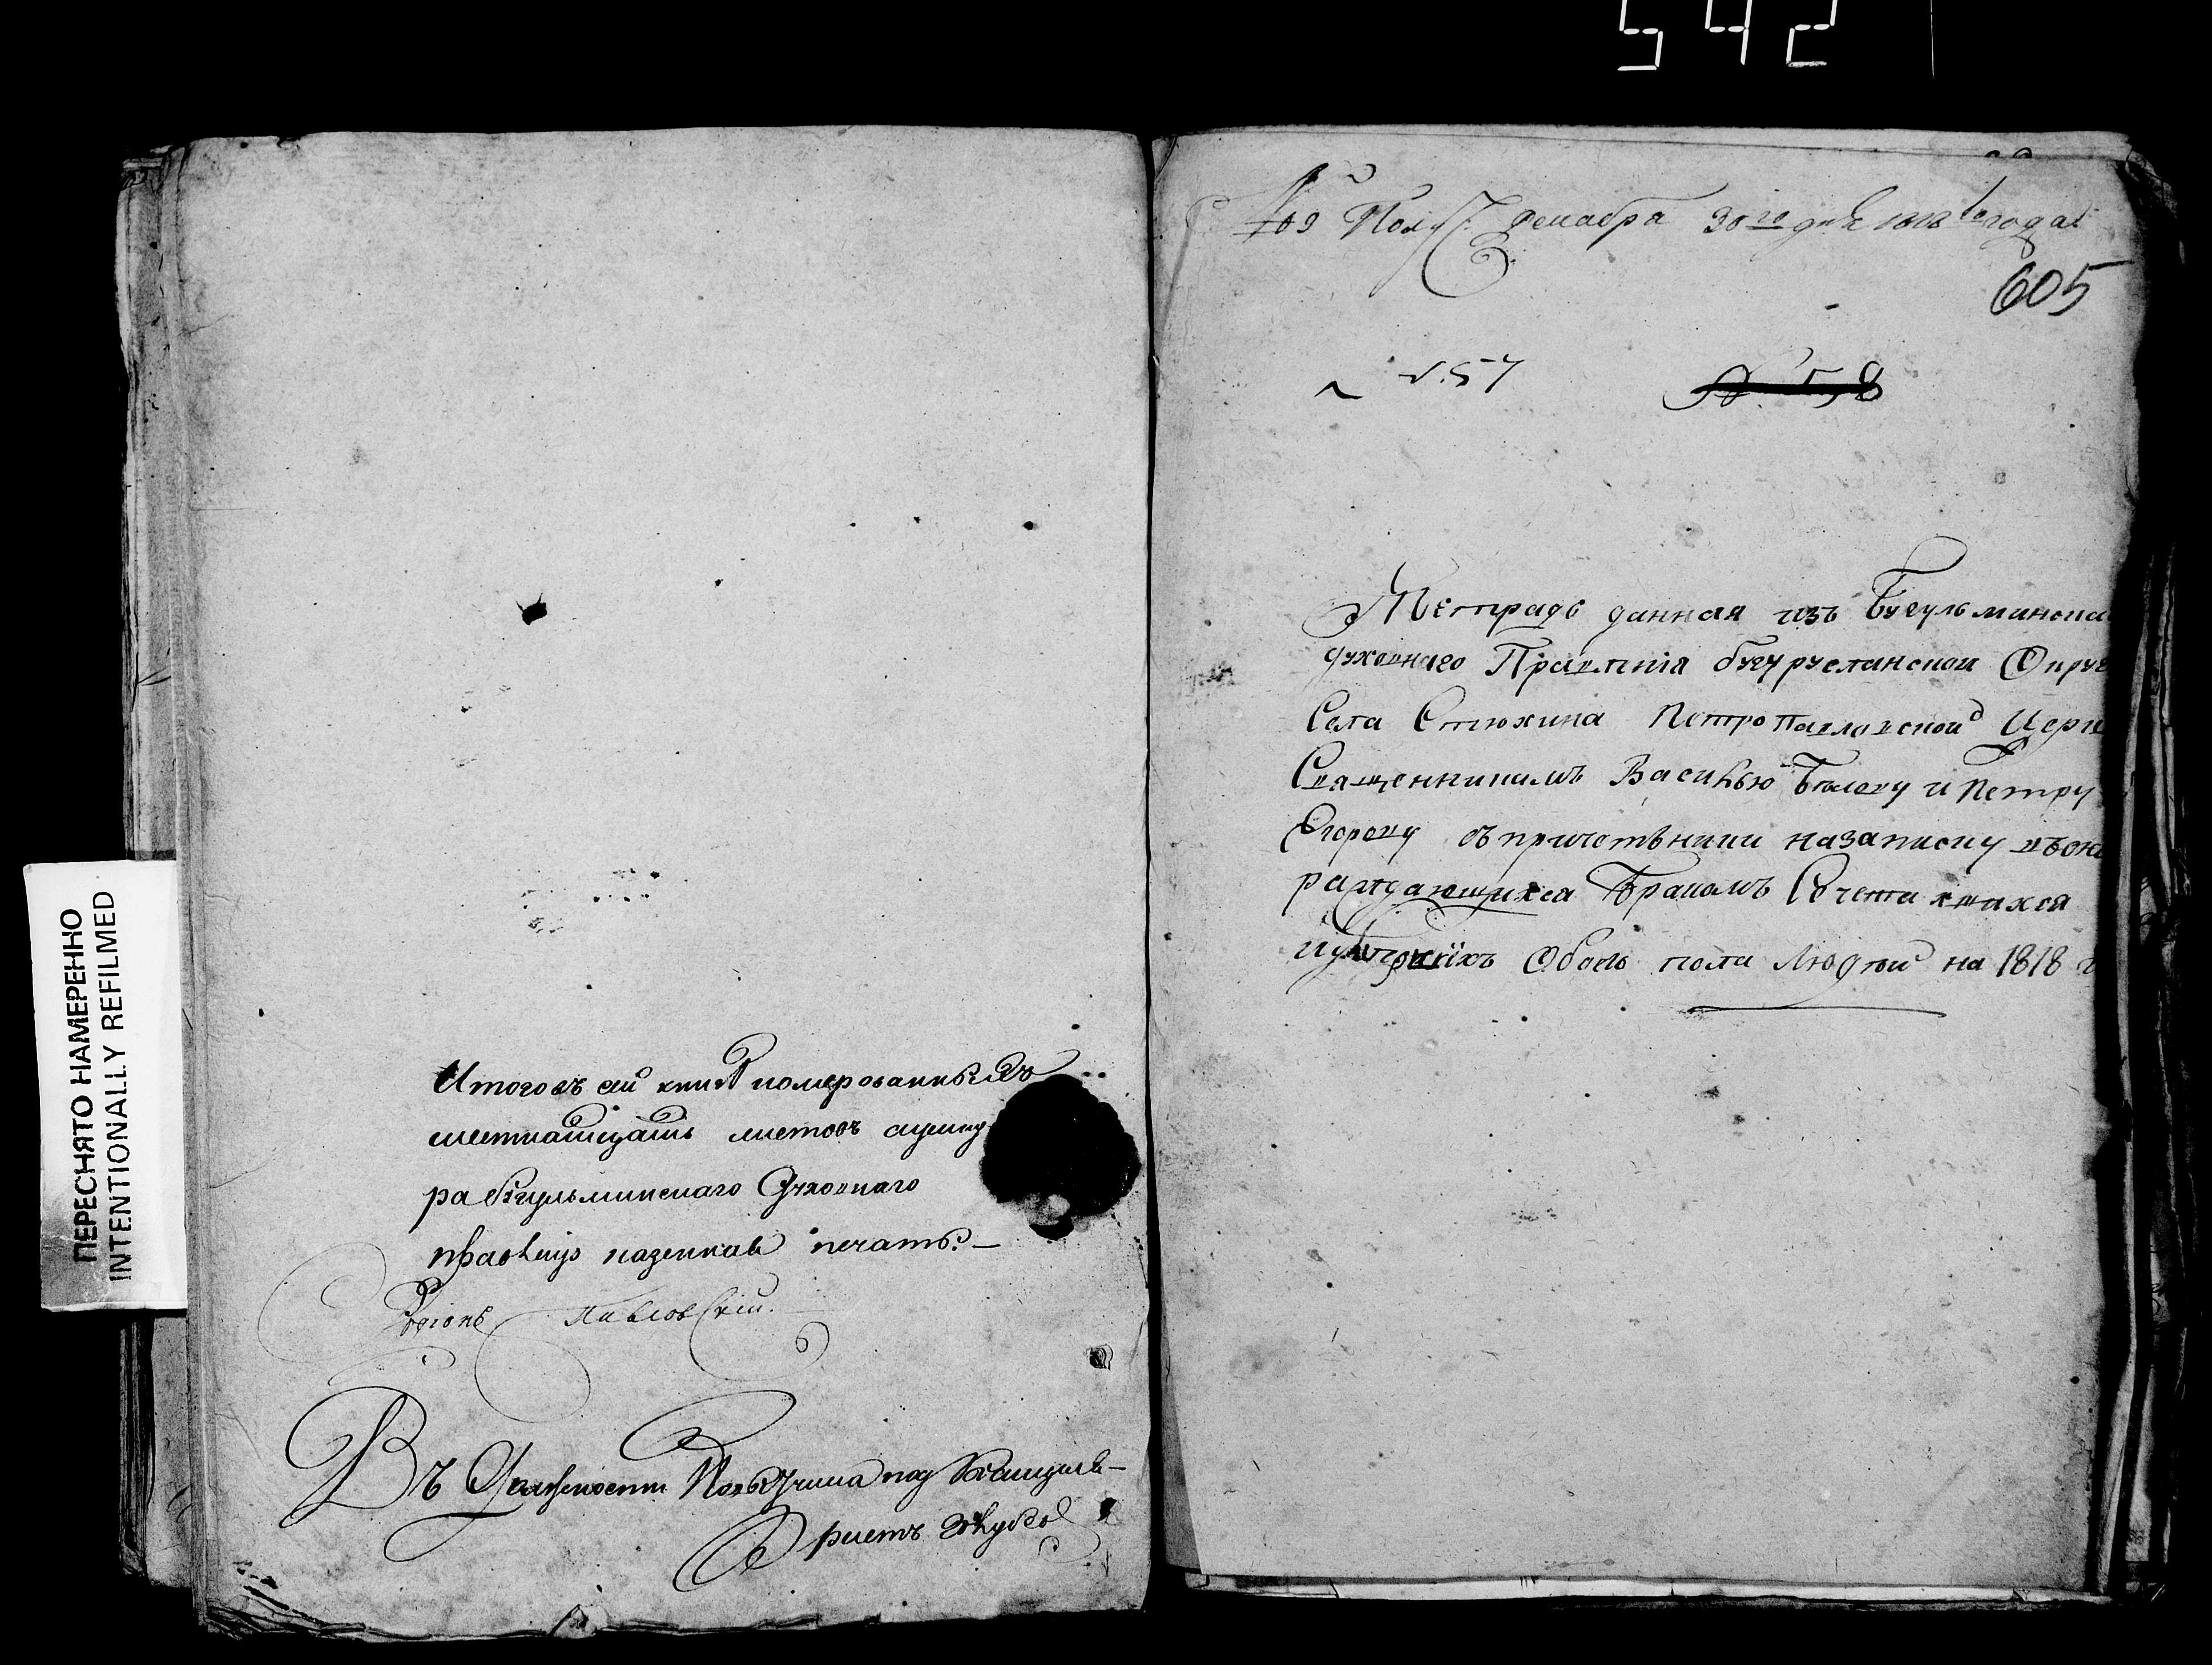 542
ПЕРЕСНЯТО НАМЕРЕННО
INTENTIONALLY REFILMED
Итого въ сей книге номерованныхъ
шестнатцать листовъ
ра Бугульминскаго Духовнаго
правления казенная печать. —
Родионъ Павловский.
Въ Должности Повытчика под Канцеля-
ристъ
Декабря 30 го дня 1818 го года
605
№ 57
№ 58
Тетрадь данная изъ Бугульминска
духовнаго Правления бугурусланской Округ
Села Стюхина Петропавловской Церк
Священникамъ Василью Белову и Петру
Егорову съ причетники на записку въ оно
раждающихся Бракомъ Сочетавшихся
и умершихъ Обоего пола Людей на 1818 г